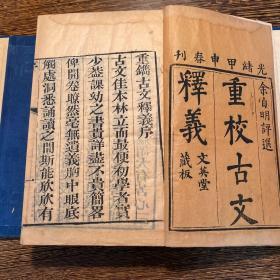 光緒甲申春刊
余自明評選
重校古文
釋義
文英堂
藏板
重鐫古文釋義序
古文佳本林立而最便初學者實
少蓋課幼之書貴詳盡不貴簡畧
俾開卷瞭然毫無遺義胸中眼底
觸處洞悉誦讀之間斯能欣欣有